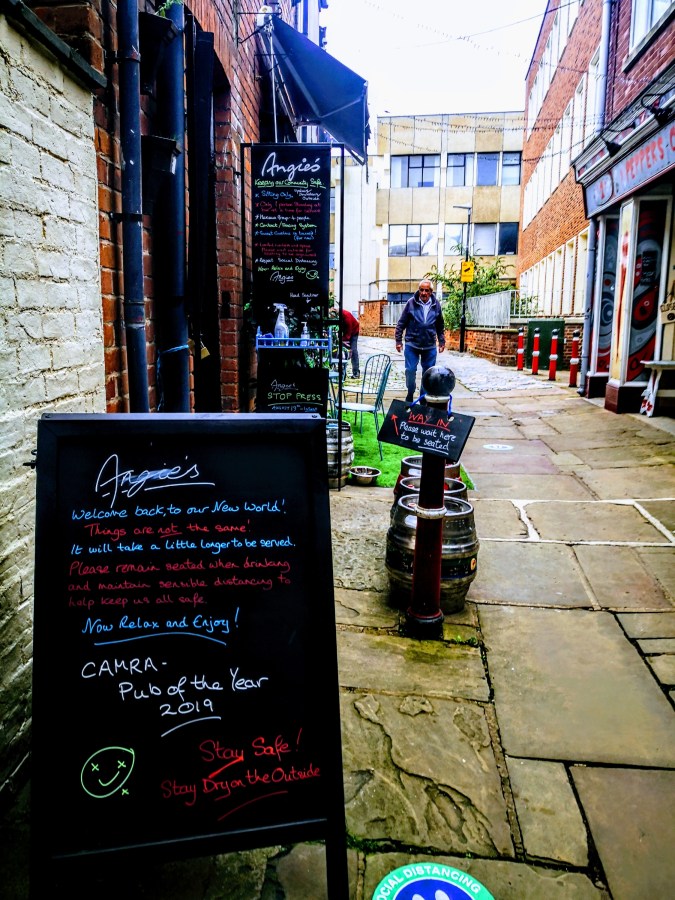 Angie's
Keeping our Community Safe
Sitting Only
Stay Safe
Angie's
Hand Sanitiser
Angie's
STOP PRESS
PEPPERS
WAY IN
Please wait here
to be seated
Angie's
Welcome back, to our New World!
Things are not the same!
It will take a little longer to be served.
Please remain seated when drinking
and maintain sensible distancing to
help keep us all safe.
Now Relax and Enjoy!
CAMRA-
Pub of the Year
2019
Stay Safe!
Stay Dry on the Outside
SOCIAL DISTANCING